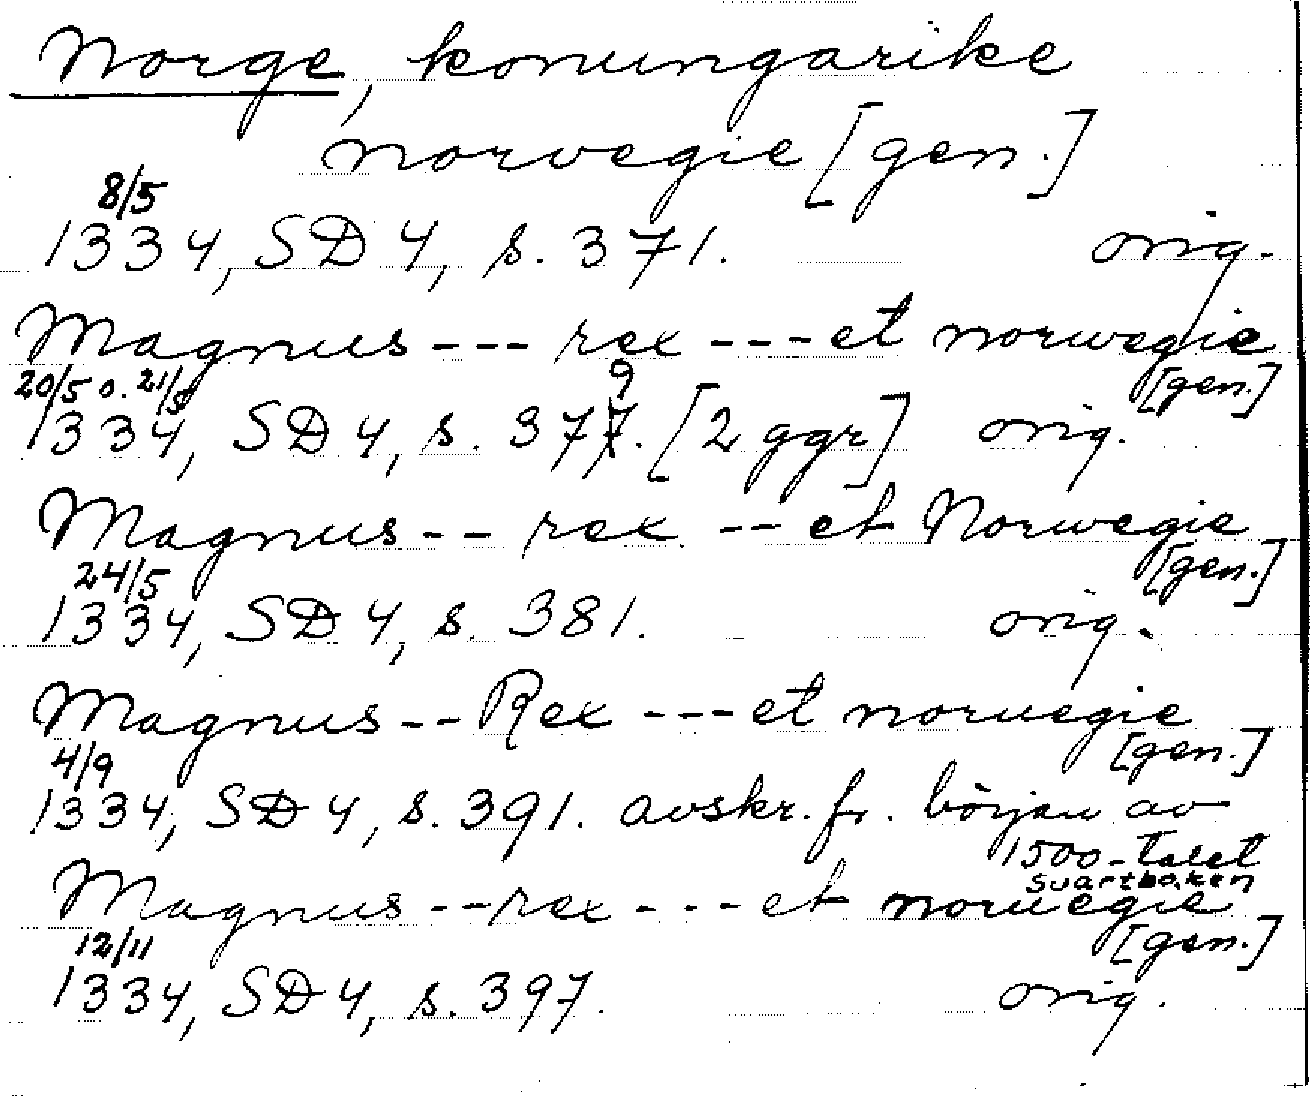 Norge, konungarike
norvegie [gen.]
8/5
1334, SD 4, s. 371. orig.
Magnus --- rex --- et norwegie
[gen.]
20/5 o. 21/5
1334, SD 4, s. 379. [2 ggr] orig.
Magnus -- rex -- et Norwegie
[gen.]
24/5
1334, SD 4, s. 381. orig.
Magnus -- Rex --- et noruegie
[gen.]
4/9
1334, SD 4, s. 391. avskr. fr. början av
1500-talet
svartboken
Magnus -- rex --- et noruegie
[gen.]
12/11
1334, SD 4, s. 397. orig.